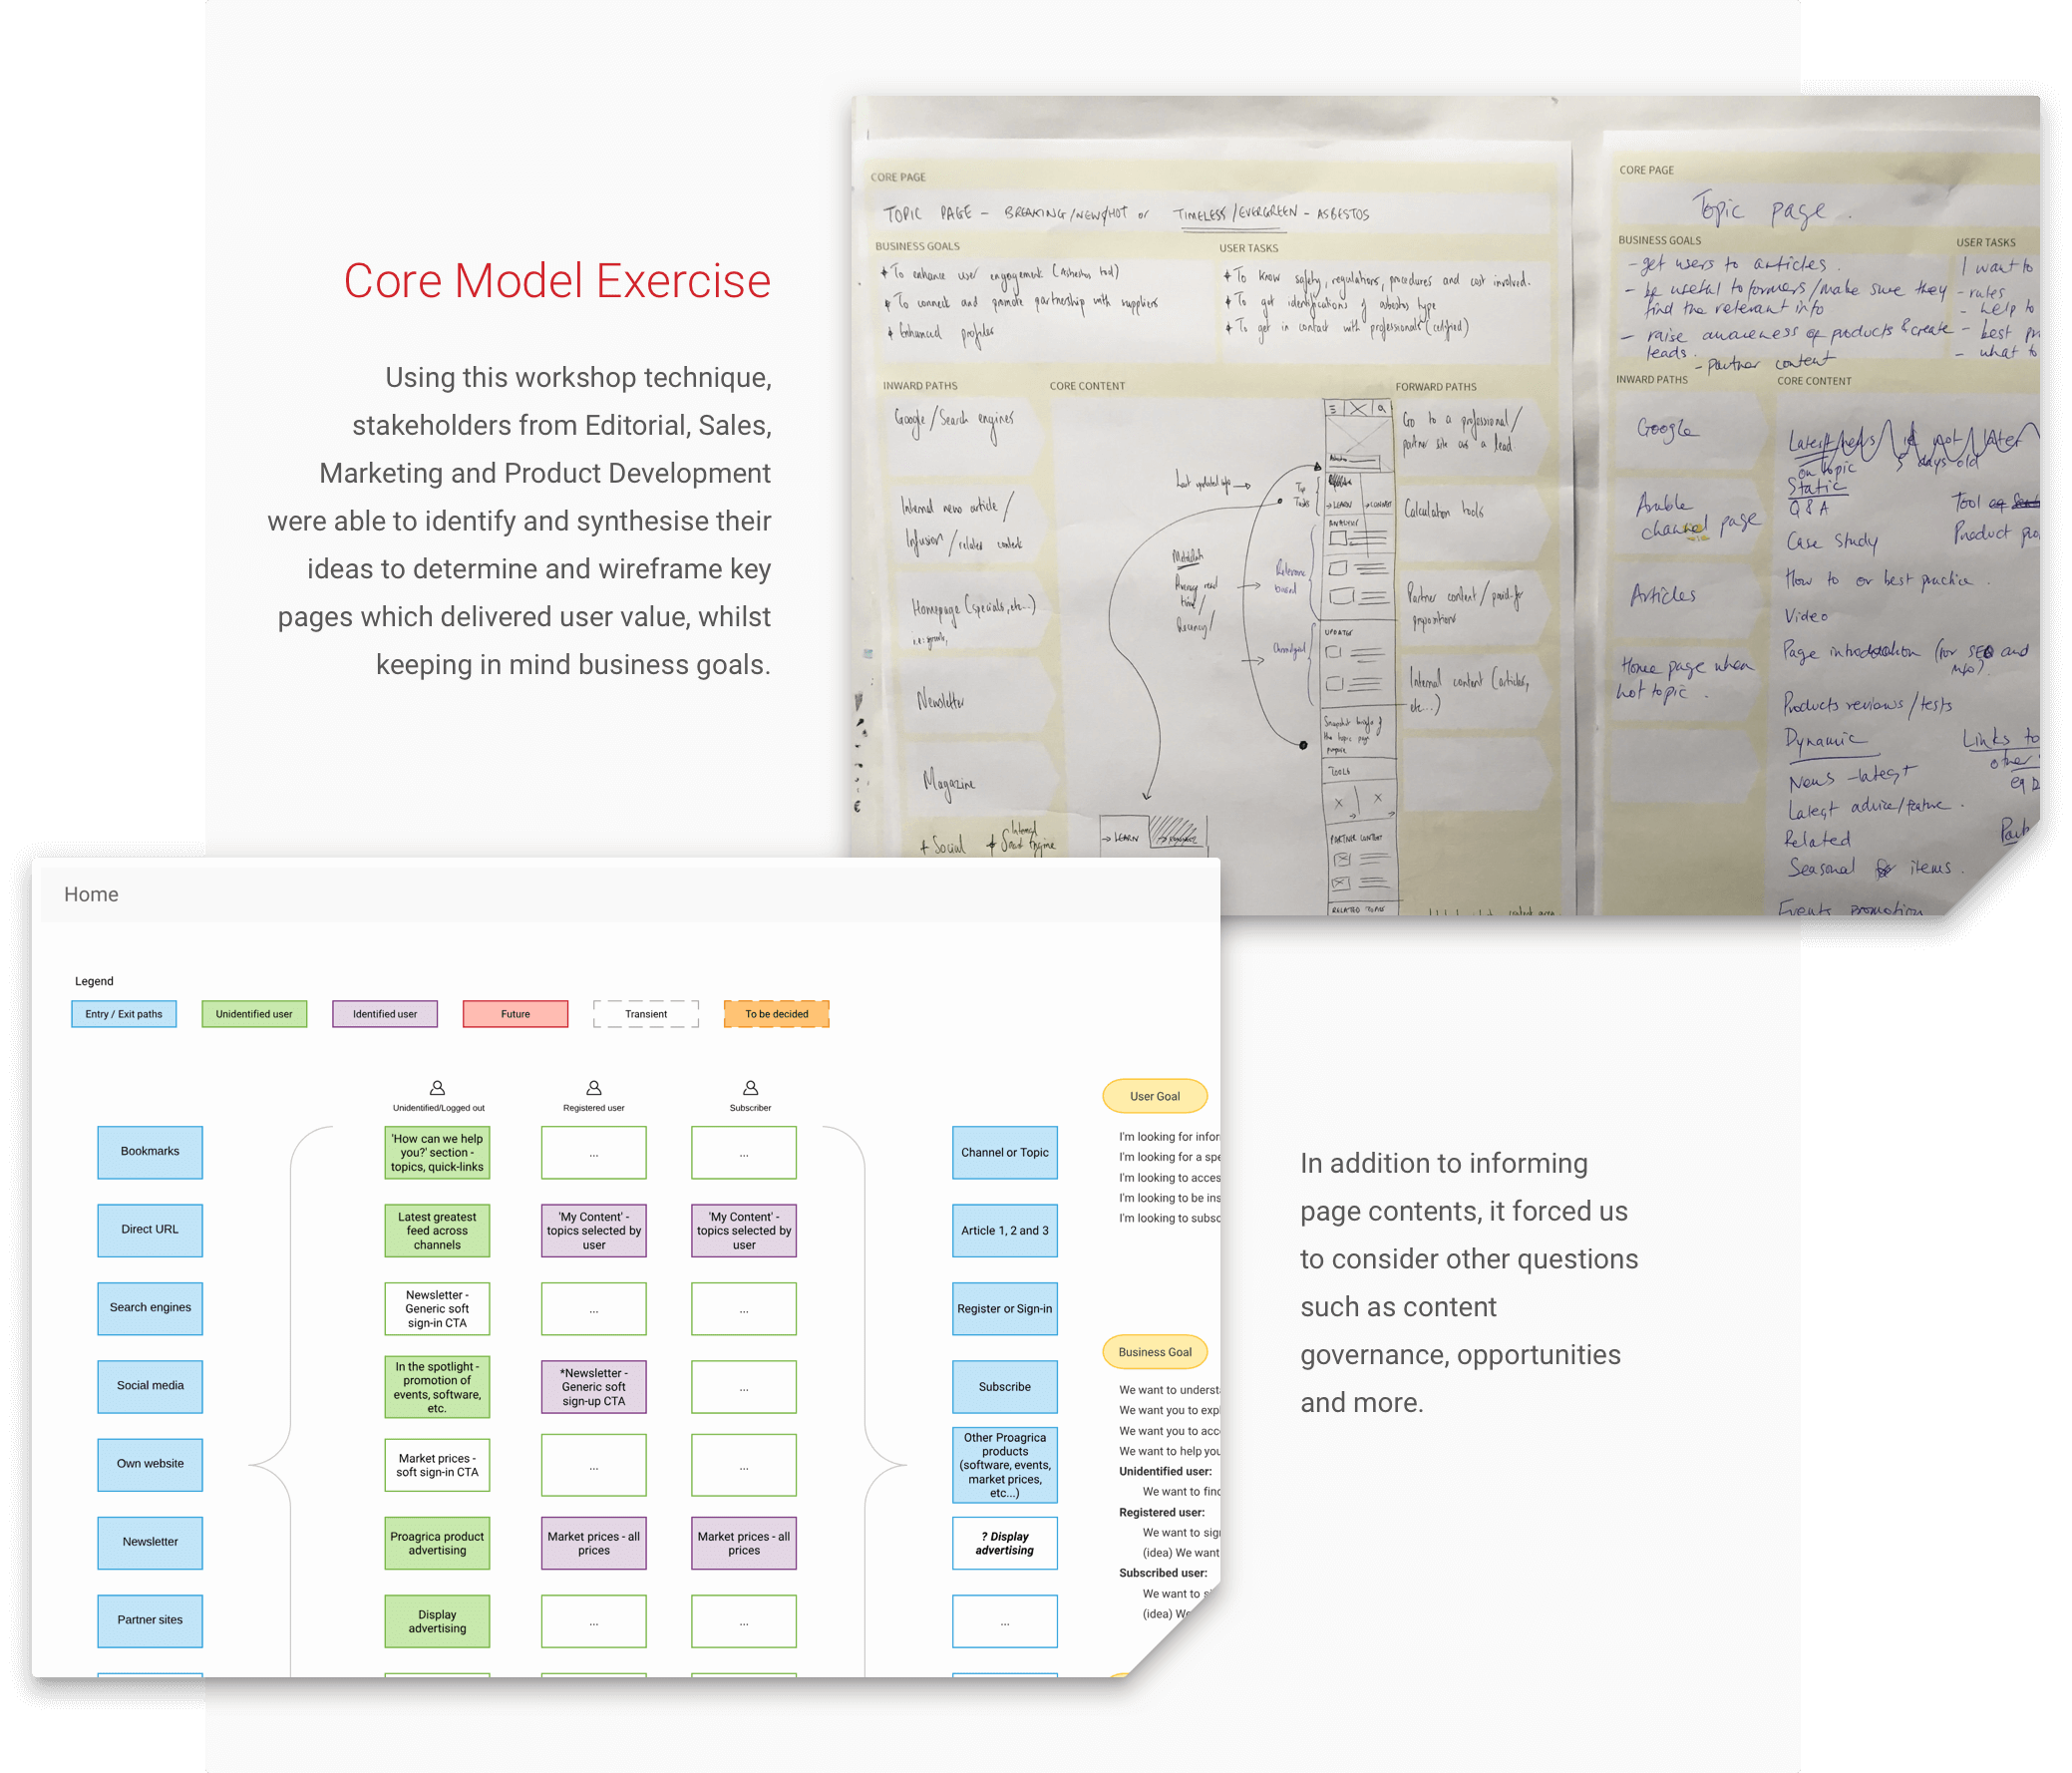 Core Model Exercise
Using this workshop technique,
stakeholders from Editorial, Sales,
Marketing and Product Development
were able to identify and synthesise their
ideas to determine and wireframe key
pages which delivered user value, whilst
keeping in mind business goals.
CORE PAGE
TOPIC PAGE - BREAKING/NEW/HOT or TIMELESS/EVERGREEN - ASBESTOS
BUSINESS GOALS
To enhance user engagement (Asbestos tool)
To connect and promote partnership with suppliers
Enhanced profiles
USER TASKS
To know safety, regulations, procedures and cost involved.
To get identifications of asbestos type
To get in contact with professionals (certified)
INWARD PATHS
Google/Search engines
Internal news article/
Infusion/related content
Homepage (specials, etc...)
Newsletter
Magazine
+ Social
CORE CONTENT
Last updated info
Top
Tasks
Metadata
Average read
time/
Recency/
Relevance
based
→ LEARN
→ CONNECT
ANALYSIS
UPDATES
Snapshot
the topic page
purpose
TOOLS
PARTNER CONTENT
RELATED TOPICS
→ LEARN
FORWARD PATHS
Go to a professional/
partner site as a lead
Calculation tools
Partner content/paid-for
propositions
Internal content (articles,
etc...)
CORE PAGE
Topic page.
BUSINESS GOALS
- get users to articles.
- be useful to farmers/make sure they
find the relevant info
- raise awareness of products & create
leads.
- partner content
USER TASKS
I want to
- rules
- help to
- best
- what to
INWARD PATHS
Google
Arable
channel page
Articles
Home page when
hot topic.
CORE CONTENT
on topic
5 days old
Static
Q & A
Tool
Case study
Product
How to or best practice.
Video
Page introduction (for SEO and
info)
Products reviews/tests
Dynamic
Links to
other
eg
News - latest
Latest advice/feature.
Related
Seasonal items.
Events promotion
Home
Legend
Entry / Exit paths
Unidentified user
Identified user
Future
Transient
To be decided
Unidentified/Logged out
Registered user
Subscriber
Bookmarks
Direct URL
Search engines
Social media
Own website
Newsletter
Partner sites
'How can we help
you?' section -
topics, quick-links
...
...
Latest greatest
feed across
channels
'My Content' -
topics selected by
user
'My Content' -
topics selected by
user
Newsletter -
Generic soft
sign-in CTA
...
...
In the spotlight -
promotion of
events, software,
etc.
*Newsletter -
Generic soft
sign-up CTA
...
Market prices -
soft sign-in CTA
...
...
Proagrica product
advertising
Market prices - all
prices
Market prices - all
prices
Display
advertising
...
...
Channel or Topic
Article 1, 2 and 3
Register or Sign-in
Subscribe
Other Proagrica
products
(software, events,
market prices,
etc...)
? Display
advertising
...
User Goal
I'm looking for infor
I'm looking for a spe
I'm looking to acces
I'm looking to be ins
I'm looking to subsc
Business Goal
We want to underst
We want you to exp
We want you to acc
We want to help you
Unidentified user:
We want to find
Registered user:
We want to sig
(idea) We want
Subscribed user:
We want to
(idea) We
In addition to informing
page contents, it forced us
to consider other questions
such as content
governance, opportunities
and more.